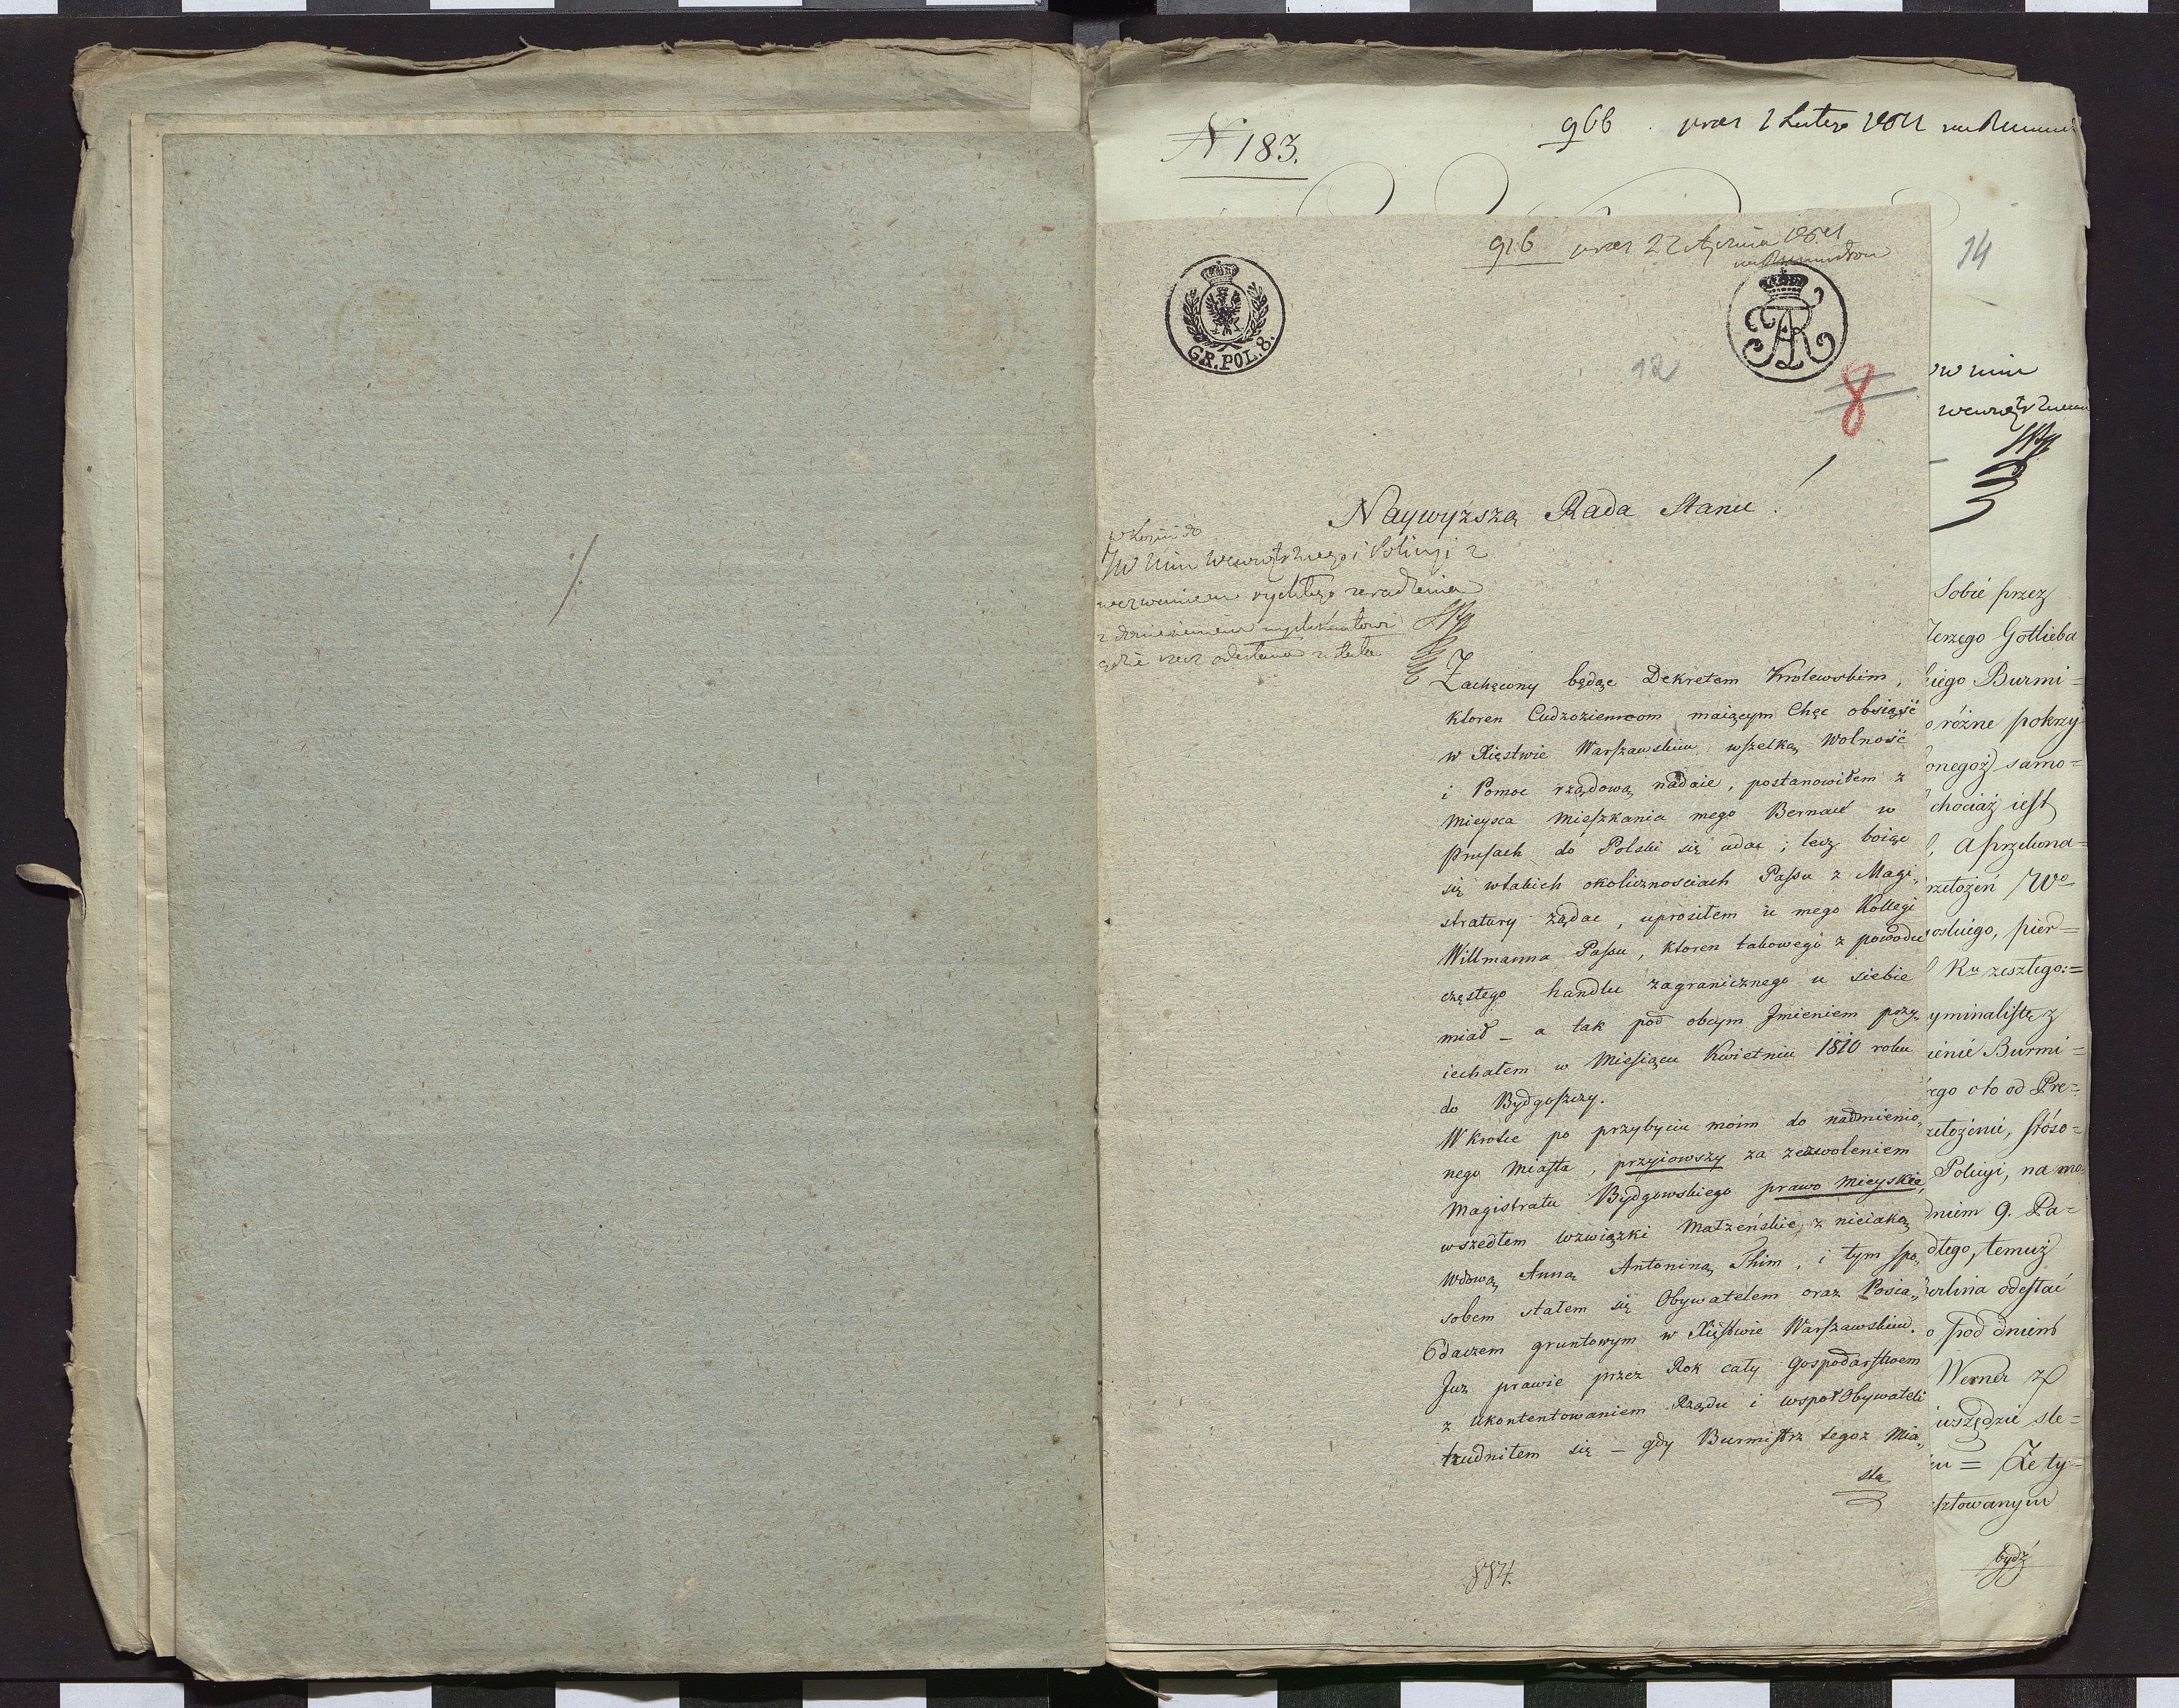 N 183.
966 prez 1 Lutego 1811
916 prez 22 Stycznia 1811
14
GR. POL. 8.
FAR
12
8
Naywyższa Rada Stanu!
JW Min Wewnętrznego i Policyi z
wezwaniem rychłego zaradzenia
z doniesieniem
gdzie rzecz odesłana została
Zachęcony będąc Dekretem Krolewskim,
ktoren Cudzoziemcom maiącym Chęc obsiąść
w Xięstwie Warszawskim wszelką Wolność
i Pomoc rządową nadaie, postanowiłem z
Mieysca Mieszkania mego Bernau w
Prusach do Polski się udac; lecz boiąc
się wtakich okolicznosciach Passu z Magi„
stratury żądac, uprosiłem u mego Kollegi
Willmanna Passu, ktoren takowego z powodu
częstego handlu zagranicznego u siebie
miał – a tak pod obcym Jmieniem przy„
iechałem w Miesiącu Kwietniu 1810 roku
do Bydgoszczy.
Wkrotce po przybyciu moim do nadmienio„
nego Miasta, przyiowszy za zezwoleniem
Magistratu Bydgowskiego prawo mieyskie,
wszedłem wzwiązki Małżeńskie, z nieiaką
Wdową Anną Antoniną Thim, i tym spo„
sobem stałem się Obywatelem oraz Posia„
daczem gruntowym w Xięstwie Warszawskim.
Juz prawie przez Rok cały Gospodarstwem
z Ukontentowaniem Rządu i wspołObywateli
trudniłem się – gdy Burmistrz tegoz Mia„
sta
884.
wewnętrznem
Sobie przez
Jerzego Gotlieba
kiego Burmi=
o różne pokrzy
onegoż samo=
chociaż iest
a przekona=
rzełożeń Wo
oskiego, pier=
Ru zeszłego:=
yminalistę z
ienie Burmi=
rego oto od Pre=
zełożenie, stóso=
Policyi, na mo
dniem 9. Pa=
dłego, temuż
Berlina odesłać
o pod dniem
Werner z
wszędzie śle=
iu = Że ty=
sztowanym
bydź